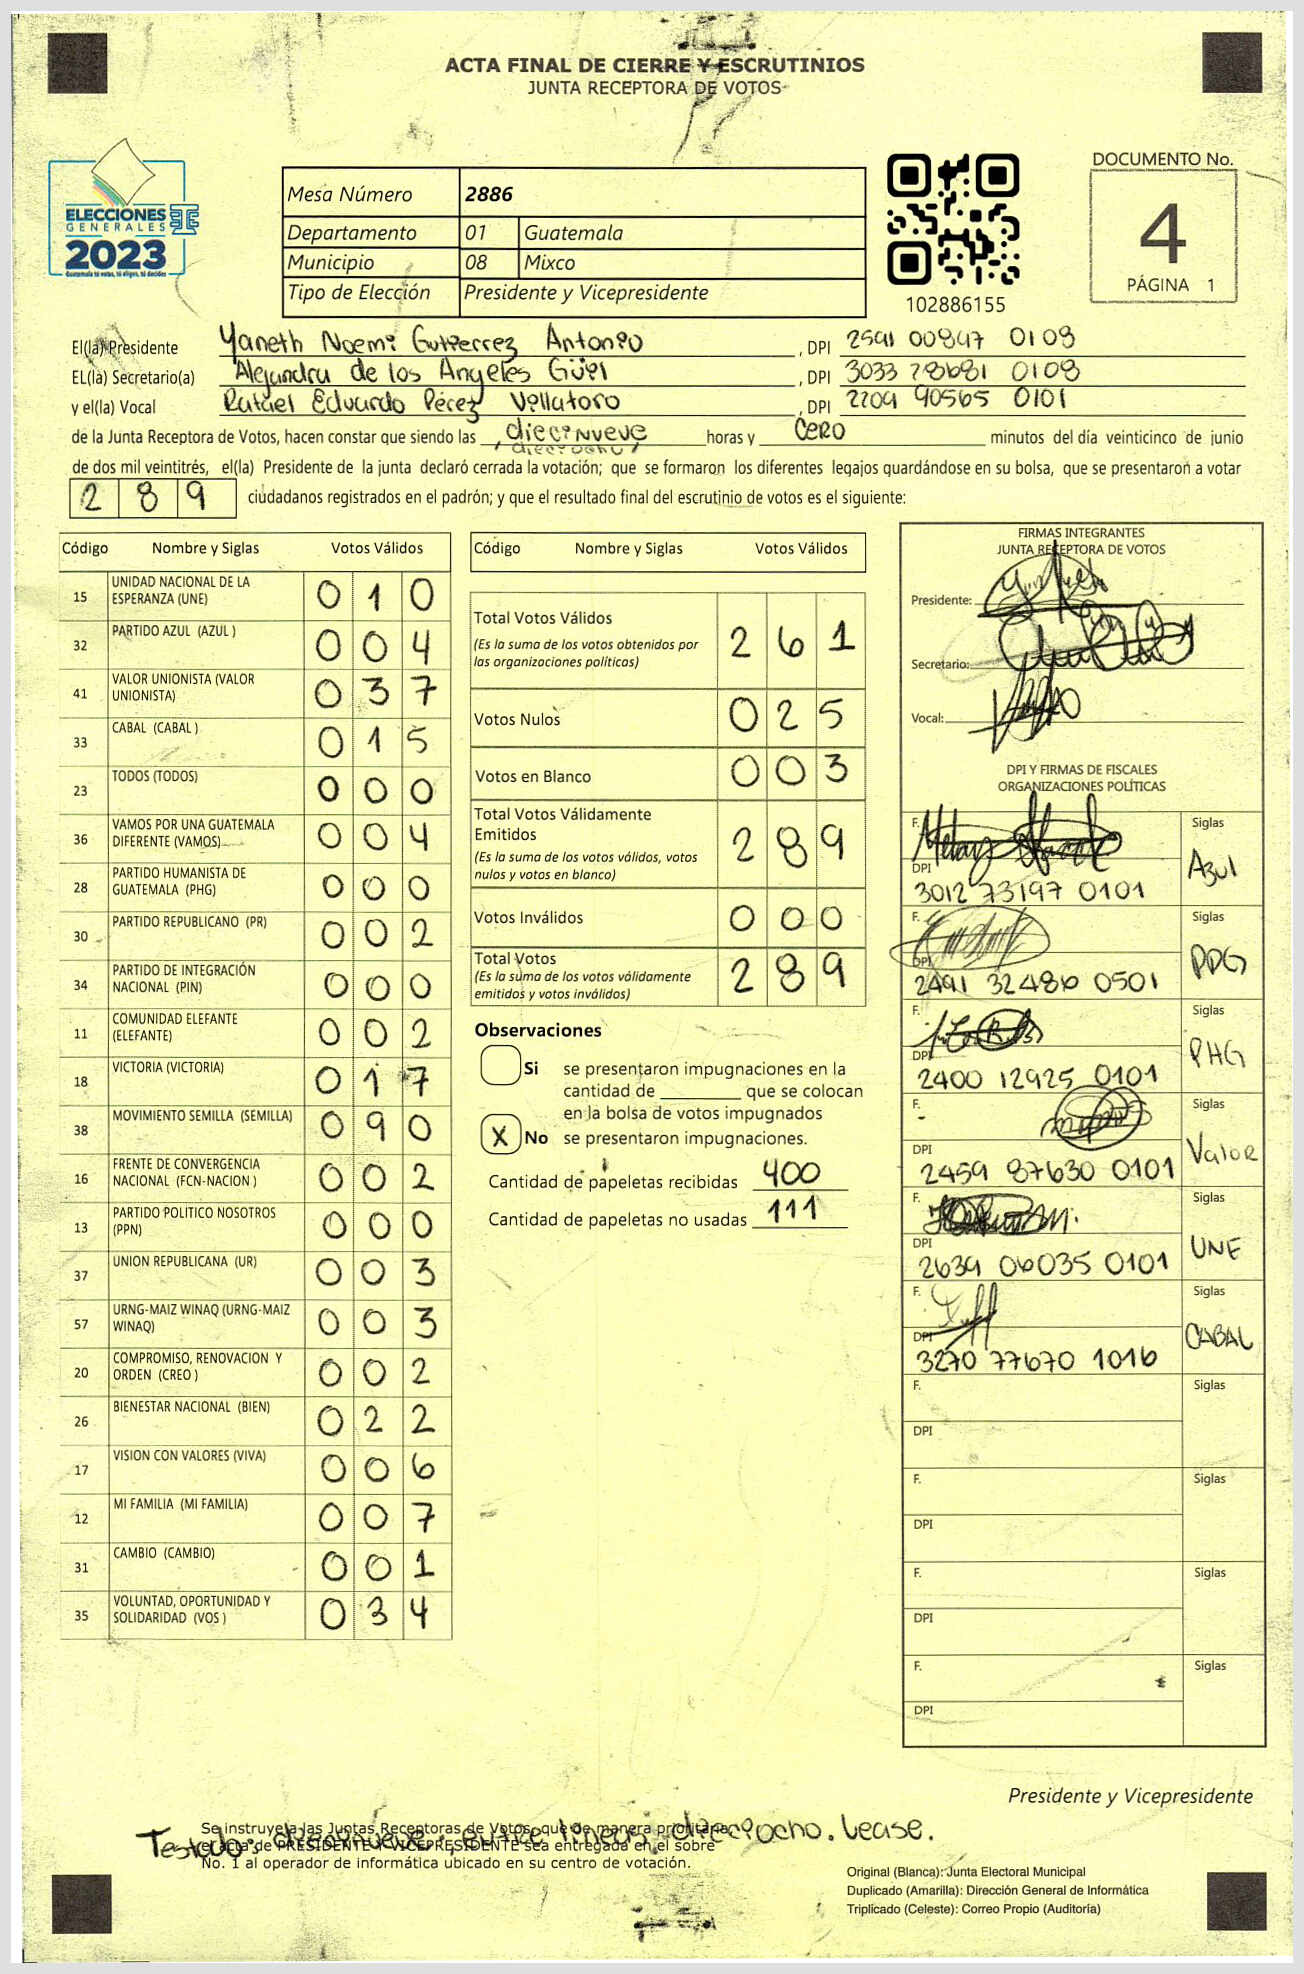 ACTA FINAL DE CIERRE Y ESCRUTINIOS
JUNTA RECEPTORA DE VOTOS
ELECCIONES
GENERALES
2023
Guatemala tú votas, tú eliges, tú decides
Mesa Número 2886
Departamento 01 Guatemala
Municipio 08 Mixco
Tipo de Elección Presidente y Vicepresidente
102886155
DOCUMENTO No.
4
PÁGINA 1
El(la) Presidente Yaneth Noemi Gutierrez Antonio , DPI 2591 00847 0108
EL(la) Secretario(a) Alejandra de los Angeles Güel , DPI 3033 78681 0108
y el(la) Vocal Rafael Eduardo Pérez Villatoro , DPI 2209 90565 0101
de la Junta Receptora de Votos, hacen constar que siendo las diecinueve horas y cero minutos del día veinticinco de junio
dieciocho
de dos mil veintitrés, el(la) Presidente de la junta declaró cerrada la votación; que se formaron los diferentes legajos guardándose en su bolsa, que se presentaron a votar
289 ciudadanos registrados en el padrón; y que el resultado final del escrutinio de votos es el siguiente:
Código Nombre y Siglas Votos Válidos
15 UNIDAD NACIONAL DE LA ESPERANZA (UNE) 010
32 PARTIDO AZUL (AZUL ) 004
41 VALOR UNIONISTA (VALOR UNIONISTA) 037
33 CABAL (CABAL ) 015
23 TODOS (TODOS) 000
36 VAMOS POR UNA GUATEMALA DIFERENTE (VAMOS) 004
28 PARTIDO HUMANISTA DE GUATEMALA (PHG) 000
30 PARTIDO REPUBLICANO (PR) 002
34 PARTIDO DE INTEGRACIÓN NACIONAL (PIN) 000
11 COMUNIDAD ELEFANTE (ELEFANTE) 002
18 VICTORIA (VICTORIA) 017
38 MOVIMIENTO SEMILLA (SEMILLA) 090
16 FRENTE DE CONVERGENCIA NACIONAL (FCN-NACION ) 002
13 PARTIDO POLITICO NOSOTROS (PPN) 000
37 UNION REPUBLICANA (UR) 003
57 URNG-MAIZ WINAQ (URNG-MAIZ WINAQ) 003
20 COMPROMISO, RENOVACION Y ORDEN (CREO ) 002
26 BIENESTAR NACIONAL (BIEN) 022
17 VISION CON VALORES (VIVA) 006
12 MI FAMILIA (MI FAMILIA) 007
31 CAMBIO (CAMBIO) 001
35 VOLUNTAD, OPORTUNIDAD Y SOLIDARIDAD (VOS ) 034
Código Nombre y Siglas Votos Válidos
Total Votos Válidos 261
(Es la suma de los votos obtenidos por
las organizaciones políticas)
Votos Nulos 025
Votos en Blanco 003
Total Votos Válidamente
Emitidos 289
(Es la suma de los votos válidos, votos
nulos y votos en blanco)
Votos Inválidos 000
Total Votos 289
(Es la suma de los votos válidamente
emitidos y votos inválidos)
Observaciones
Si se presentaron impugnaciones en la
cantidad de que se colocan
en la bolsa de votos impugnados
X No se presentaron impugnaciones.
Cantidad de papeletas recibidas 400
Cantidad de papeletas no usadas 111
FIRMAS INTEGRANTES
JUNTA RECEPTORA DE VOTOS
Presidente:
Secretario:
Vocal:
DPI Y FIRMAS DE FISCALES
ORGANIZACIONES POLÍTICAS
F. Siglas
DPI 3012 73197 0101 Azul
F. Siglas
DPI 2491 32486 0501 PDG
F. Siglas
DPI 2400 12925 0101 PHG
F. Siglas
DPI 2459 87630 0101 Valor
F. Siglas
DPI 2639 06035 0101 UNE
F. Siglas
DPI 3270 77670 1016 CABAL
F. Siglas
DPI
F. Siglas
DPI
F. Siglas
DPI
F. Siglas
DPI
Presidente y Vicepresidente
Testado: diecinueve, entre lineas dieciocho. Lease.
Se instruye a las Juntas Receptoras de Votos, que de manera prioritaria
el acta de PRESIDENTE Y VICEPRESIDENTE sea entregada en el sobre
No. 1 al operador de informática ubicado en su centro de votación.
Original (Blanca): Junta Electoral Municipal
Duplicado (Amarilla): Dirección General de Informática
Triplicado (Celeste): Correo Propio (Auditoría)